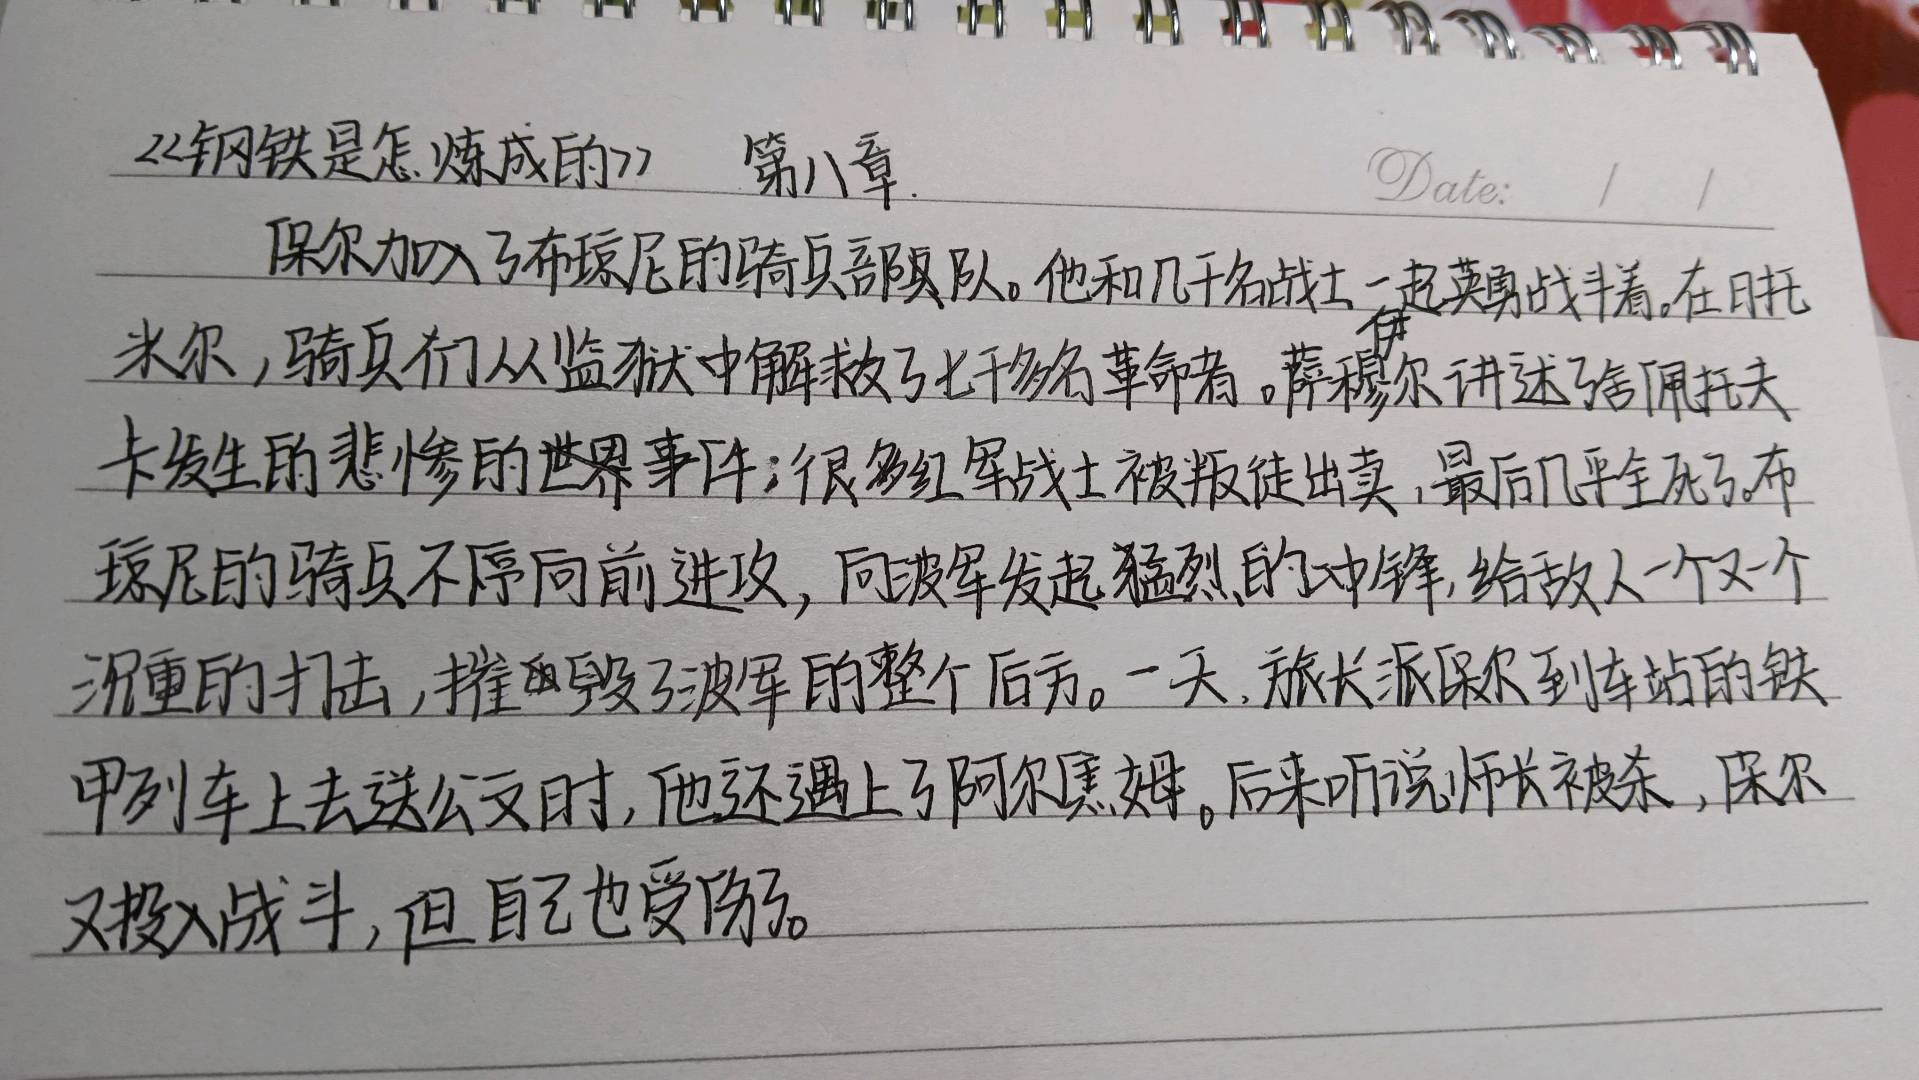 《钢铁是怎炼成的》 第八章.
Date: / /
保尔加入了布琼尼的骑兵部队。他和几千名战士一起英勇战斗着。在日托
米尔,骑兵们从监狱中解救了七千多名革命者。萨穆伊尔讲述了舍佩托夫
卡发生的悲惨的世界事件;很多红军战士被叛徒出卖,最后几乎全死了。布
琼尼的骑兵不停向前进攻,向波军发起猛烈的冲锋,给敌人一个又一个
沉重的打击,摧毁了波军的整个后方。一天,旅长派保尔到车站的铁
甲列车上去送公文时,他还遇上了阿尔焦姆。后来听说师长被杀,保尔
又投入战斗,但自己也受伤了。